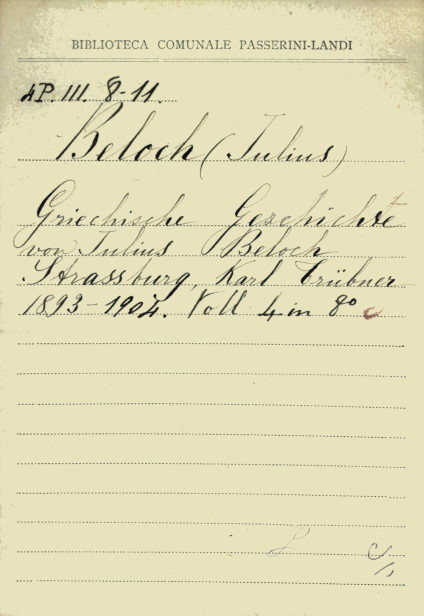 BIBLIOTECA COMUNALE PASSERINI-LANDI
4P. III. 8-11.
Beloch (Julius)
Griechische Geschichte
von Julius Beloch
Strassburg, Karl Trübner
1893-1904. Voll 4 in 8º